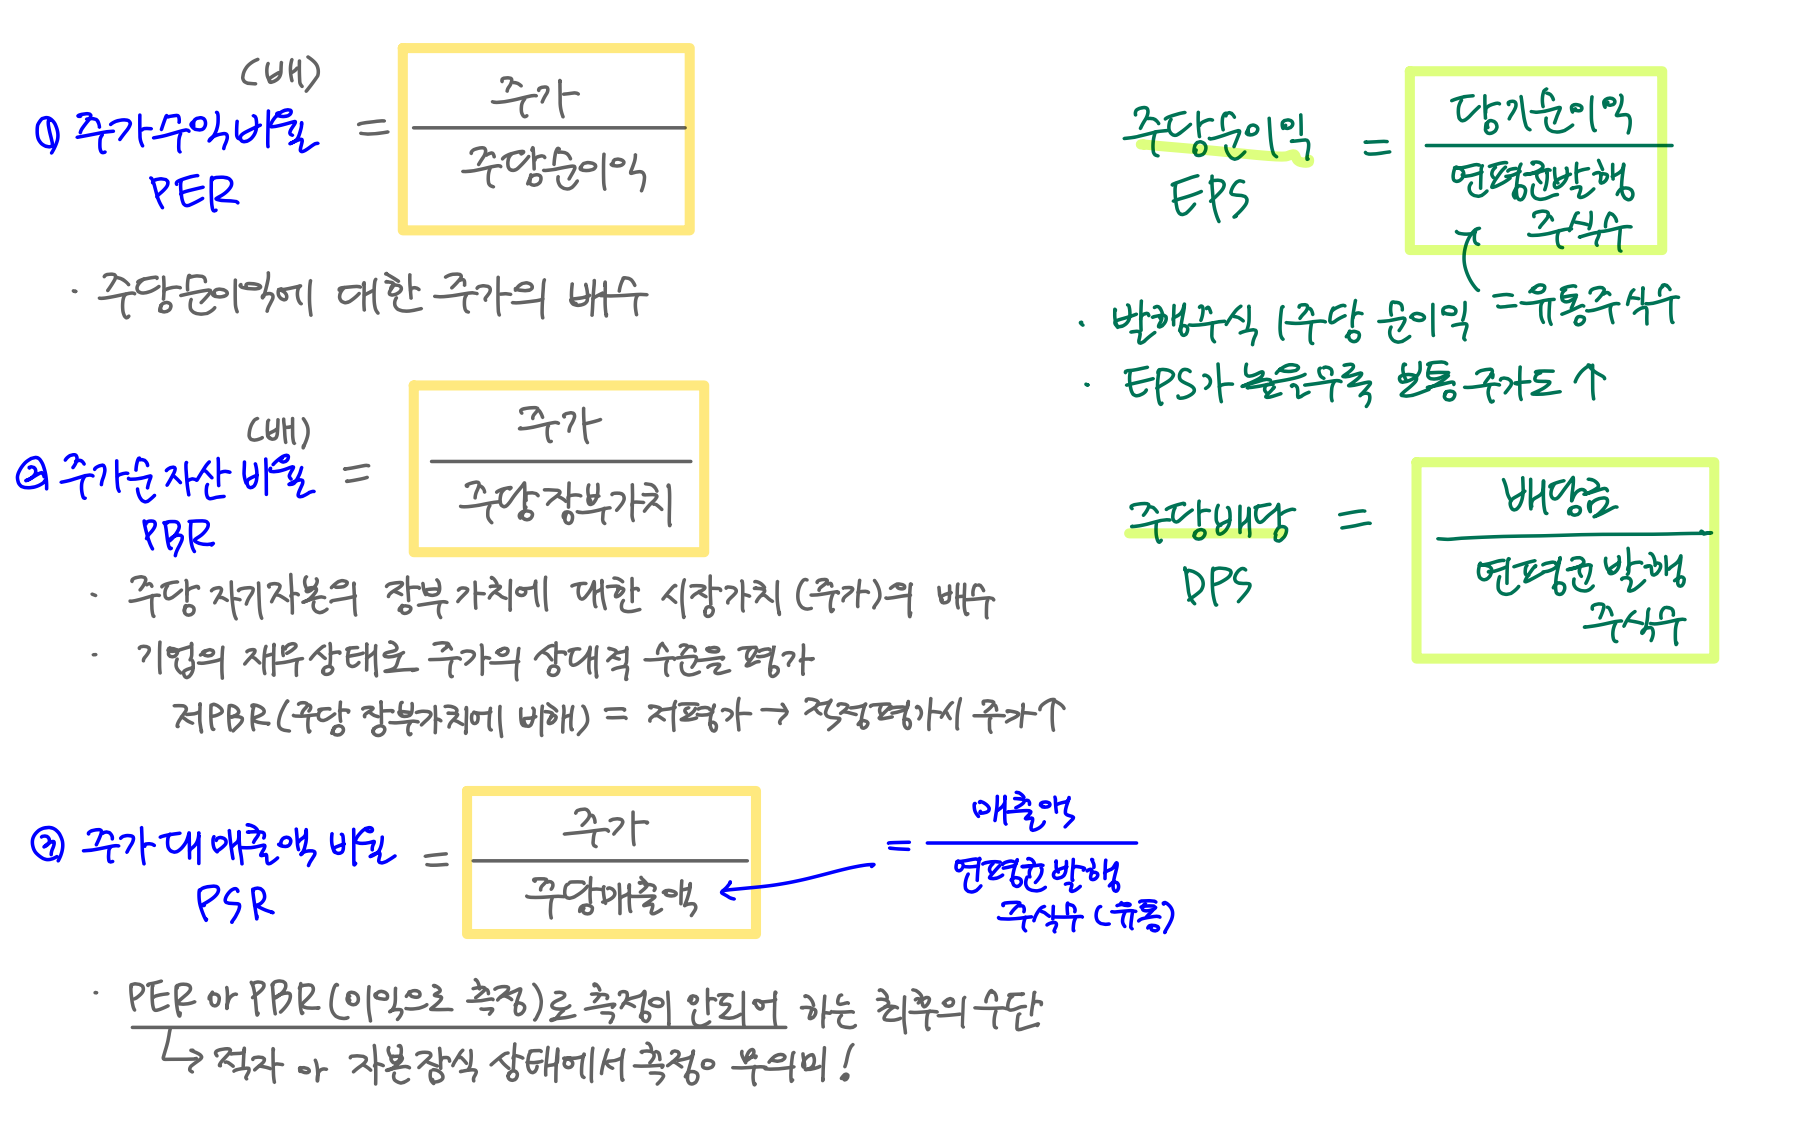 (배)
① 주가수익비율 = 주가
주당순이익
PER
· 주당순이익에 대한 주가의 배수
(배)
② 주가순자산비율 = 주가
주당장부가치
PBR
· 주당 자기자본의 장부가치에 대한 시장가치(주가)의 배수
· 기업의 재무상태로 주가의 상대적 수준을 평가
저PBR(주당 장부가치에 비해) = 저평가 → 적정평가시 주가↑
③ 주가대매출액 비율 = 주가
주당매출액
PSR
= 매출액
연평균발행
주식수(유통)
· PER or PBR(이익으로 측정)로 측정이 안되어 하는 최후의 수단
↳ 적자 or 자본잠식 상태에서 측정이 무의미!
주당순이익 = 당기순이익
연평균발행
주식수
EPS
= 유통주식수
· 발행주식 1주당 순이익
· EPS가 높을수록 보통 주가도 ↑
주당배당 = 배당금
연평균발행
주식수
DPS